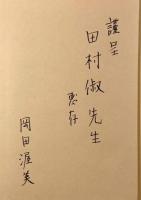 謹呈
田村俶先生
恵存
岡田渥美